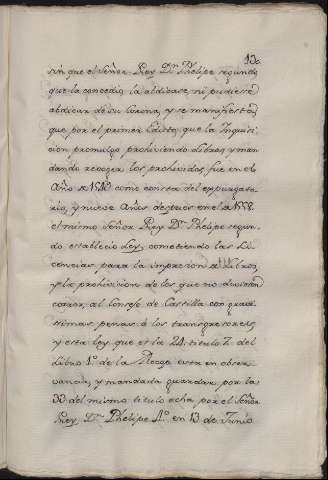 10.
sin que el Señor Rey Dn. Phelipe segundo
que la concedio la aldicase, ni pudiese
abdicar de su Corona, y se manifiesta,
que por el primer Edicto, que la Inquisi
cion promulgo prohiviendo Libros, y man
dando recoger los prohividos fue en el
Año de consta del expurgato
rio, y nueve Años despues en el de 1558.
el mismo Señor Rey Dn. Phelipe segun
do establecio Ley, cometiendo las Li
cencias para la impresion de Libros,
y la prohivicion de los que no deviesen
correr, al Consejo de Castilla con gravi
simas penas à los transgresores
y esta ley que es la 24. titulo 7. del
Libro 1º. de la Recop. esta en obser
vancia, y mandada guardar por la
33 del mismo titulo echa por el Señor
Rey Dn. Phelipe 4º. en 13 de Junio